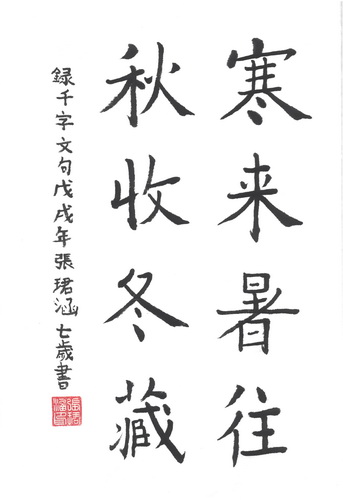 寒来暑往
秋收冬藏
録千字文句戊戌年張珺涵七歲書